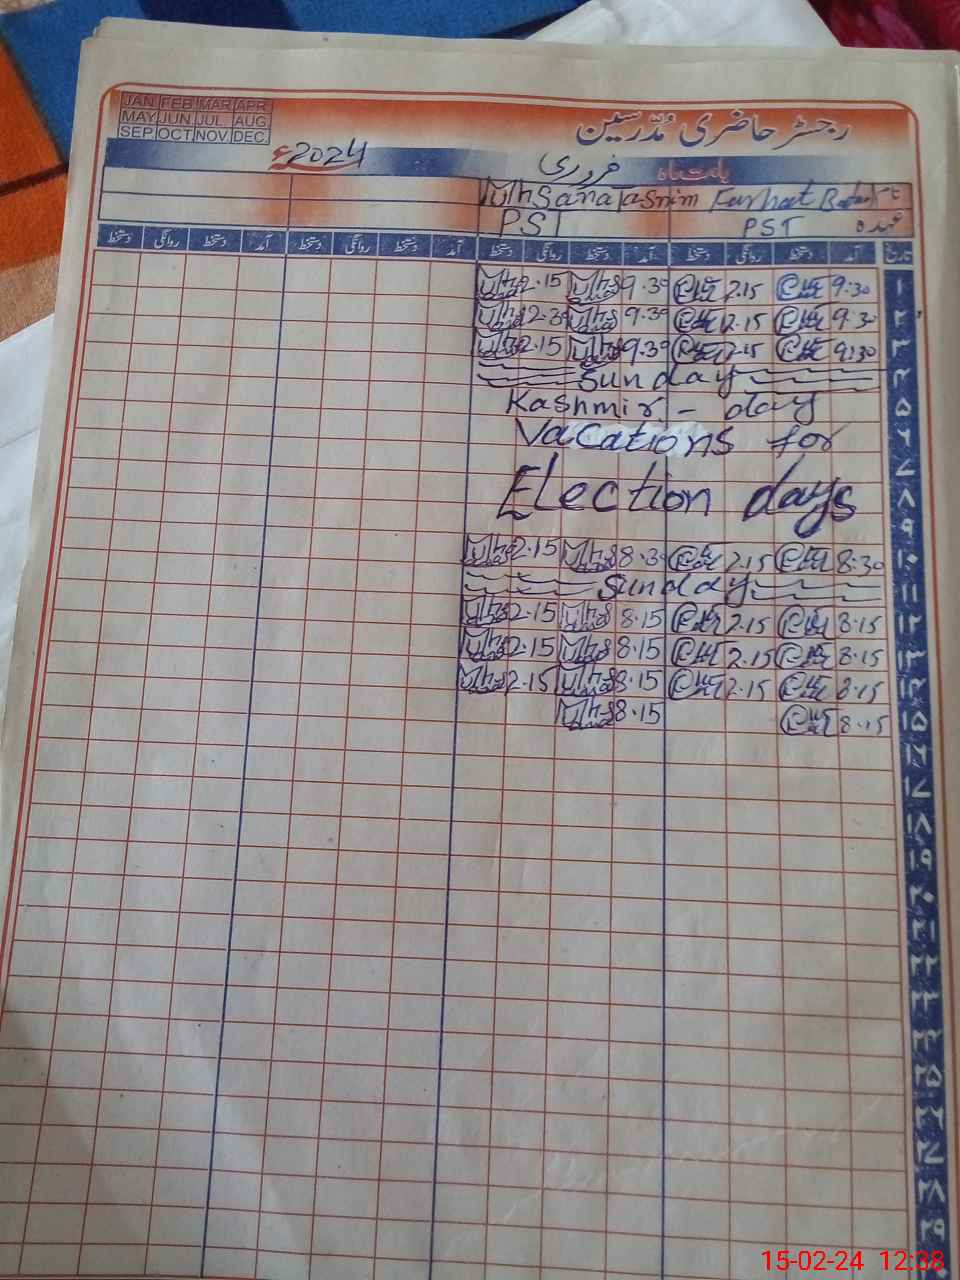 JAN FEB MAR APR
MAY JUN JUL AUG
SEP OCT NOV DEC
رجسٹر حاضری مُدّرسین
بابت ماہ فروری 2024ء
نام Farhat Tasnim Sana
عہدہ PST PST
تاریخ آمد دستخط روانگی دستخط آمد دستخط روانگی دستخط آمد دستخط روانگی دستخط آمد دستخط روانگی دستخط
۱ 9:30 2.15 9.30 2.15
۲ 9.30 2.15 9.30 2.30
۳ 9:30 2.15 9.30 2.15
۴ Sunday
۵ Kashmir - day
۶ Vacations for
۷
۸ Election days
۹
۱۰ 8.30 2.15 8.30 2.15
۱۱ Sunday
۱۲ 8.15 2.15 8.15 2.15
۱۳ 8.15 2.15 8.15 2.15
۱۴ 8.15 2.15 8.15 2.15
۱۵ 8.15 8.15
۱۶
۱۷
۱۸
۱۹
۲۰
۲۱
۲۲
۲۳
۲۴
۲۵
۲۶
۲۷
۲۸
۲۹
15-02-24 12:38